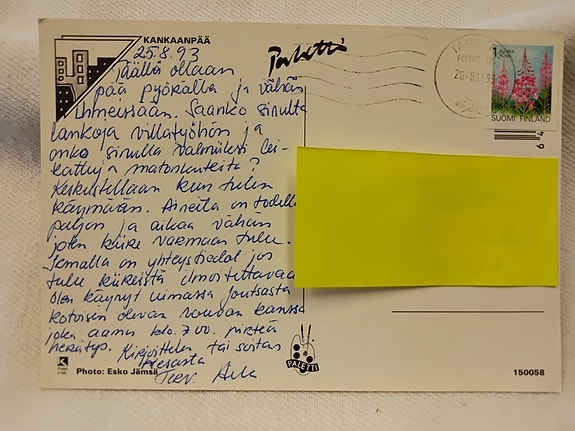 KANKAANPÄÄ
25.8.93
Täällä ollaan
pää pyörällä ja vähän
ihmeissään. Saanko sinulta
lankoja villatyöhön ja
onko sinulla valmiiksi lei-
kattuja matonkuteita?
Keskustellaan kun tulen
käymään. Aineita on todella
paljon ja aikaa vähän
joten kiire varmaan tulee.
Jemalla on yhteystiedot jos
tulee kiireistä ilmoitettavaa
Olen käynyt uimassa Joutsasta
kotoisin olevan rouvan kanssa
joka aamu klo. 7.00. pirteä
herätys. Kirjoittele tai soitan
Terv.
Photo: Esko Jämsä
Paletti
PALETTI
26.8.93
1
SUOMI FINLAND
150058